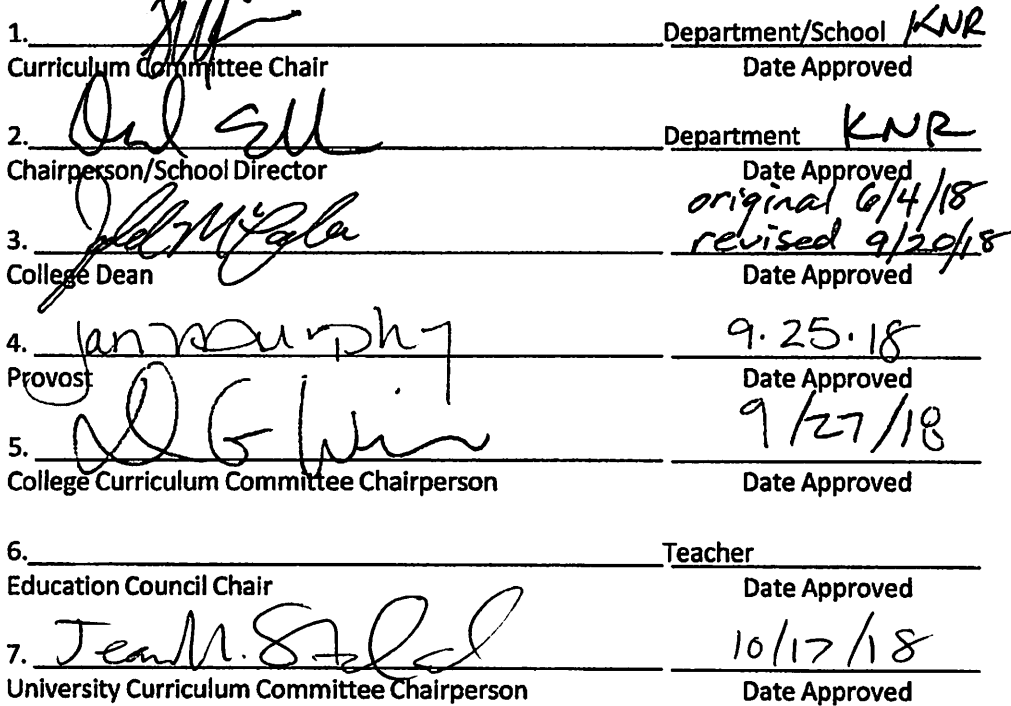 1. Department/School KNR
Curriculum Committee Chair Date Approved
2. Department KNR
Chairperson/School Director Date Approved
original 6/4/18
3. revised 9/20/18
College Dean Date Approved
4. Jan Murphy 9.25.18
Provost Date Approved
5. 9/27/18
College Curriculum Committee Chairperson Date Approved
6. Teacher
Education Council Chair Date Approved
7. Jean M. 10/17/18
University Curriculum Committee Chairperson Date Approved